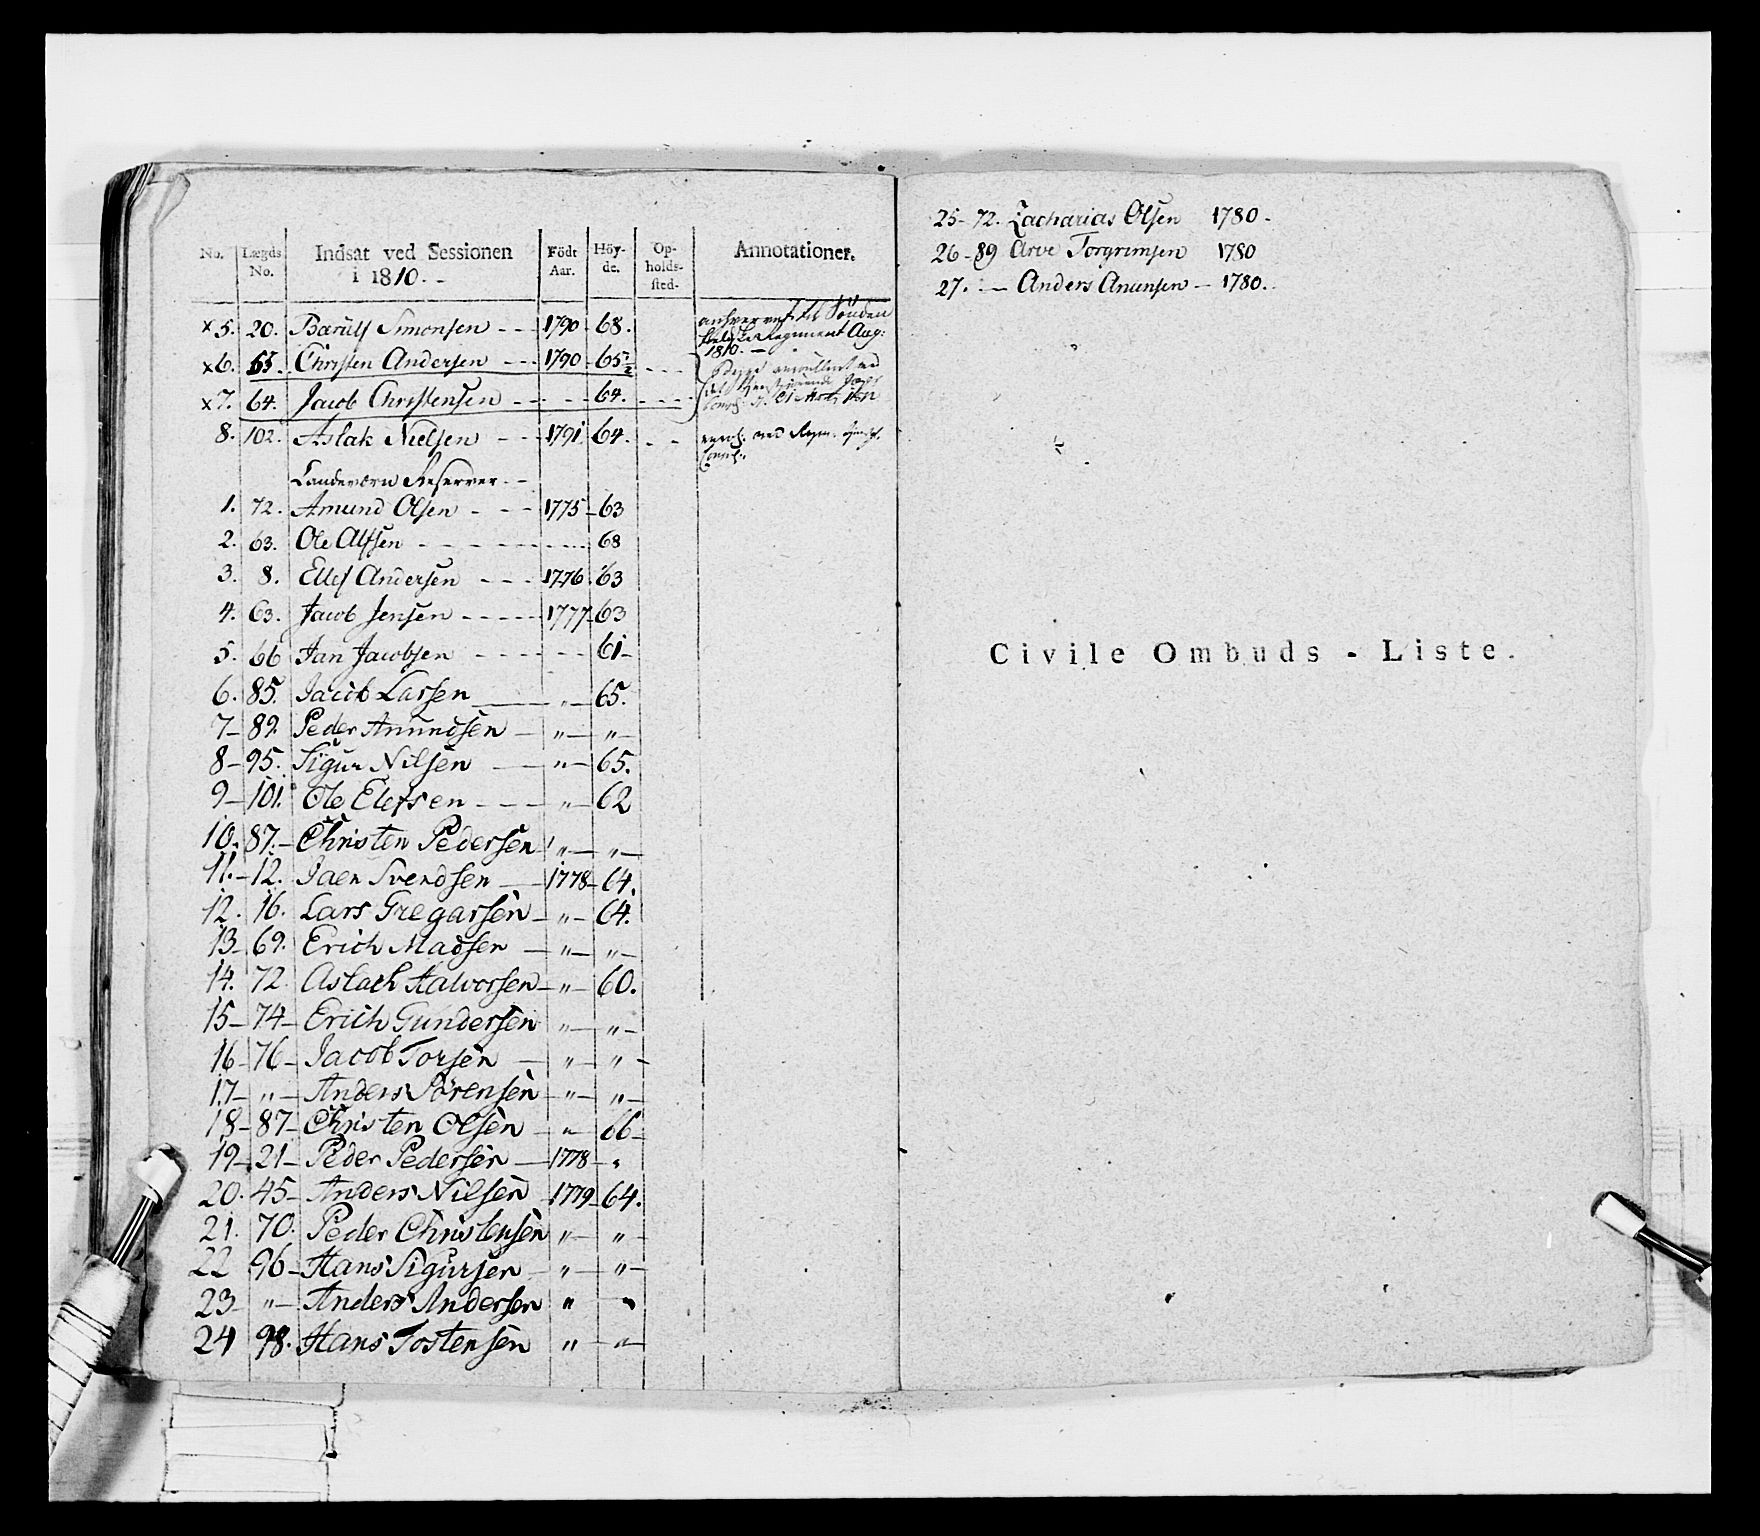 No. Lægds No. Indsat ved Sessionen i 1810. - Födt Aar. Höy-de. Op-holds-sted. Annotationer.
x 5. 20. Barült Simonsen - - - 1790 - 68.
Regiment Aug: 1810. -
x 6. 63. Christen Andersen - - - 1790 - 65
x 7. 64. Jacob Christensen - - - - - 64. - - - -
8. 102. Aslak Nielsen - - - 1791 64. - -
Landeværn Reserver. -
1. 72. Amund Olsen - - - 1775 - 63
2. 63. Ole Alfsen - - - - - - - - 68
3. 8. Ellef Andersen - - - 1776. 63
4. 63. Jacob Jensen - - - - - 1777 - 63
5. 66 Jan Jacobsen - - - - - - - 61 -
6. 85. Jacob Larsen - " - 65.
7 - 89. Peder Amundsen - " - " -
8 - 95. Sigur Nilsen - " - 65.
9 - 101. Ole Elefsen - - - - " - 62
10. 87. - Christen Pedersen - " - " -
11. - 12. Jaen Svendsen - 1778 - 64.
12. 16. Lars Gregarsen - " - 64.
13 - 69. Erich Madsen - " - " -
14. 72. Aslach Halvorsen - " - 60.
15 - 74 - Erich Gundersen " - " -
16 - 76 - Jacob Torsen - " - " -
17 - " - Anders Sörensen - " - " -
18 - 87 - Christen Olsen - " - 66 -
19 - 21 - Peder Pedersen - 1778 - "
20. 45 - Anders Nilsen - 1779 - 64.
21. 70. Peder Christensen " - " -
22 96 - Hans Sigursen - " - " -
23 - " - Anders Andersen " - "
24 98. Hans Tostensen " - " -
25 - 72. Zacharias Olsen 1780 -
26 - 89 Arve Torgrimsen 1780
27. - - Anders Anunsen - 1780.
Civile Ombuds - Liste.